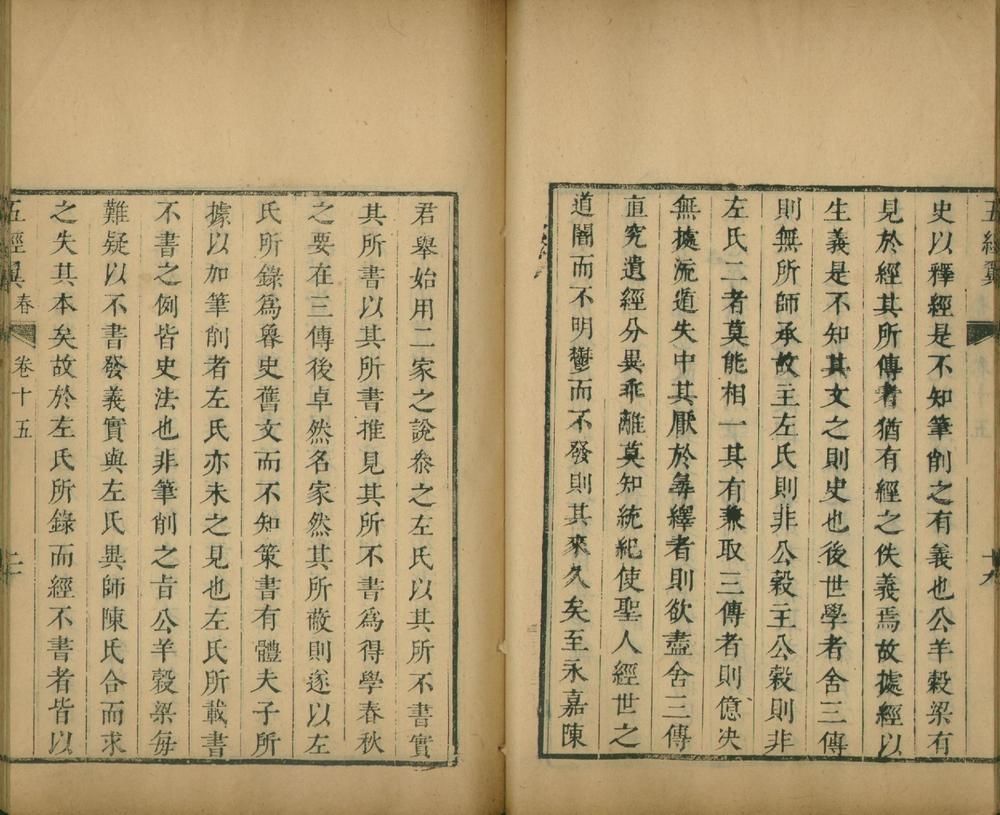 五經翼
十九
史以釋經是不知筆削之有義也公羊穀梁有
見於經其所傳者猶有經之佚義焉故據經以
生義是不知其文之則史也後世學者舍三傳
則無所師承故主左氏則非公穀主公穀則非
左氏二者莫能相一其有兼取三傳者則億决
無據流遁失中其厭於尋繹者則欲盡舍三傳
直究遺經分異乖離莫知統紀使聖人經世之
道闇而不明鬱而不發則其來久矣至永嘉陳
君舉始用二家之說叅之左氏以其所不書實
其所書以其所書推見其所不書爲得學春秋
之要在三傳後卓然名家然其所蔽則遂以左
氏所錄爲魯史舊文而不知策書有體夫子所
據以加筆削者左氏亦未之見也左氏所載書
不書之例皆史法也非筆削之旨公羊穀梁每
難疑以不書發義實與左氏異師陳氏合而求
之失其本矣故於左氏所錄而經不書者皆以
五經翼 春 卷十五 二